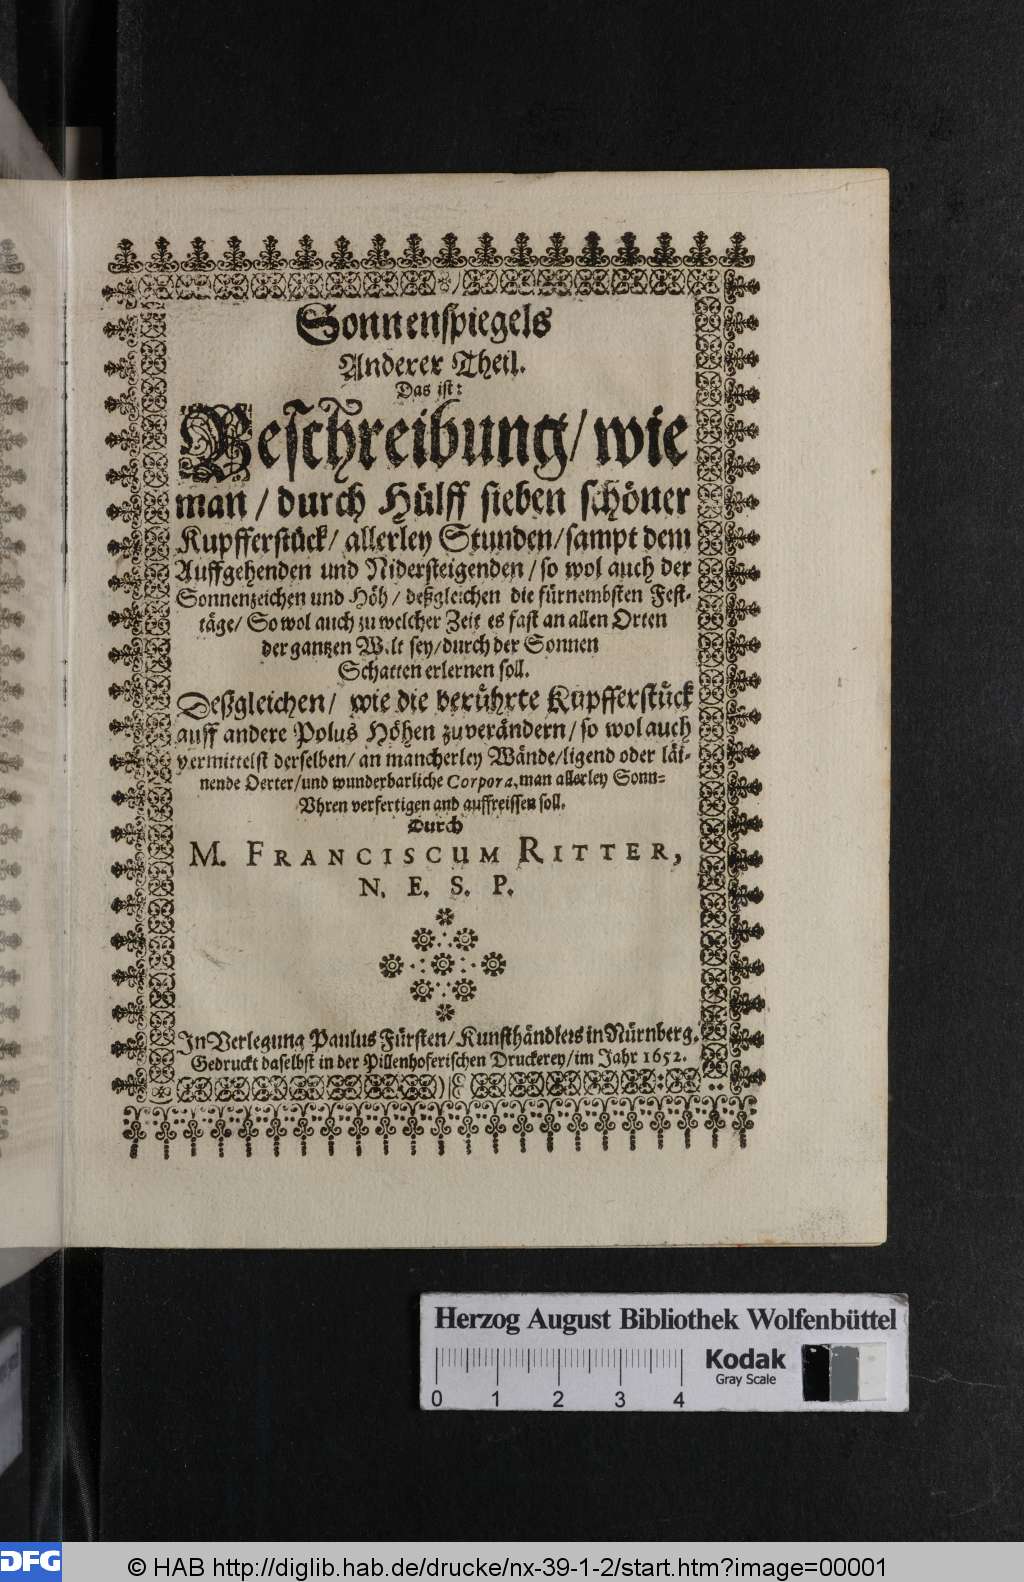 Sonnenspiegels
Anderer Theil.
Das ist:
Beschreibung/ wie
man / durch Hülff sieben schöner
Kupfferstück/ allerley Stunden/ sampt dem
Auffgehenden und Nidersteigenden / so wol auch der
Sonnenzeichen und Höh / deßgleichen die fürnembsten Fest-
täge/ So wol auch zu welcher Zeit es fast an allen Orten
der gantzen Welt sey/ durch der Sonnen
Schatten erlernen soll.
Deßgleichen/ wie die berührte Kupfferstück
auff andere Polus Höhen zu verändern/ so wol auch
vermittelst derselben/ an mancherley Wände/ ligend oder läi-
nende Oerter/ und wunderbarliche Corpora, man allerley Sonn-
Vhren verfertigen und auffreissen soll.
Durch
M. FRANCISCUM RITTER,
N. E. S. P.
In Verlegung Paulus Fürsten/ Kunsthändlers in Nürnberg.
Gedruckt daselbst in der Pillenhoferischen Druckerey/ im Jahr 1652.
Herzog August Bibliothek Wolfenbüttel
0 1 2 3 4
Kodak
Gray Scale
DFG © HAB http://diglib.hab.de/drucke/nx-39-1-2/start.htm?image=00001